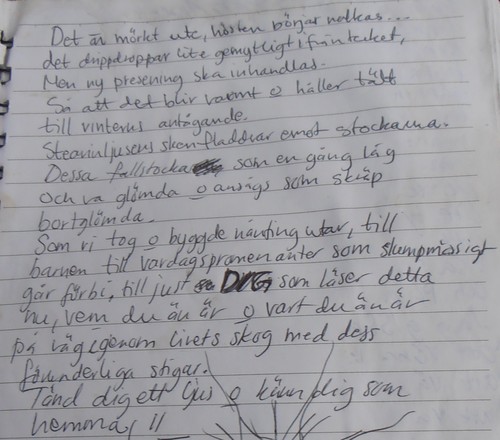 Det är mörkt ute, hösten börjar nalkas...
det druppdroppar lite gemytligt ifrån taket,
Men ny presening ska inhandlas.
Så att det blir varmt o håller tätt
till vinterns antågande.
Stearinljusens sken fladdrar emot stockarna.
Dessa fallstockar som en gång låg
och va glömda o ansågs som skräp
bortglömda.
Som vi tog o byggde nånting utav, till
barnen till vardagspromenanter som slumpmässigt
går förbi, till just DIG som läser detta
nu, vem du än är o vart du än är
på väg igenom livets skog med dess
förunderliga stigar.
Tänd dig ett ljus o känn dig som
hemma, !!